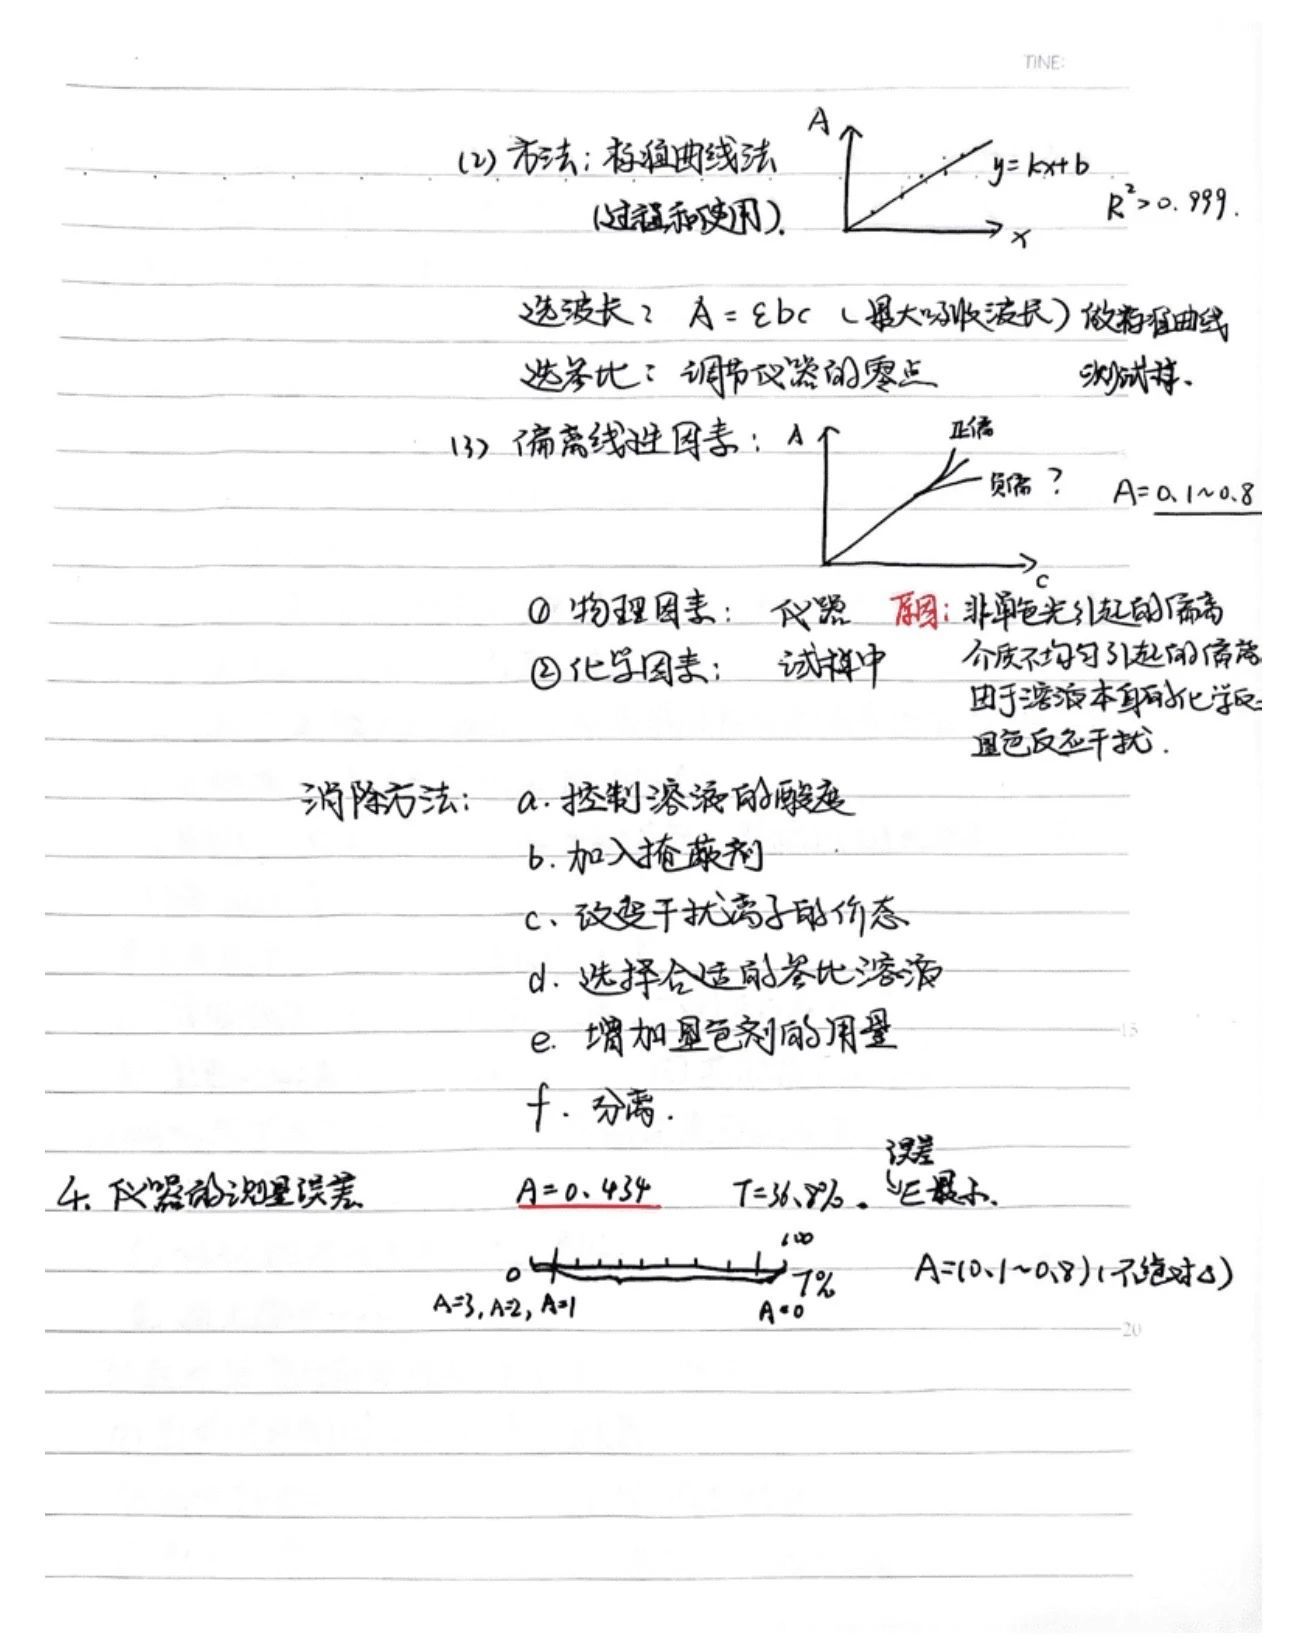 TINE:
(2) 方法：标准曲线法
(过程和使用).
A
y=kx+b
x
R²>0.999.
选波长： A=εbc (最大吸收波长) 做标准曲线
选参比：调节仪器的零点 测试样.
(3) 偏离线性因素： A
正偏
负偏 ?
A=0.1~0.8
c
① 物理因素： 仪器 原因: 非单色光引起的偏离
② 化学因素： 试样中 介质不均匀引起的偏离
由于溶液本身的化学反
显色反应干扰.
消除方法： a. 控制溶液的酸度
b. 加入掩蔽剂
c、改变干扰离子的价态
d. 选择合适的参比溶液
e. 增加显色剂的用量
f. 分离.
15
误差
4. 仪器的测量误差 A=0.434 T=36.8%. E最小.
100
0 T% A=(0.1~0.8) (不绝对)
A=3, A=2, A=1 A=0
20